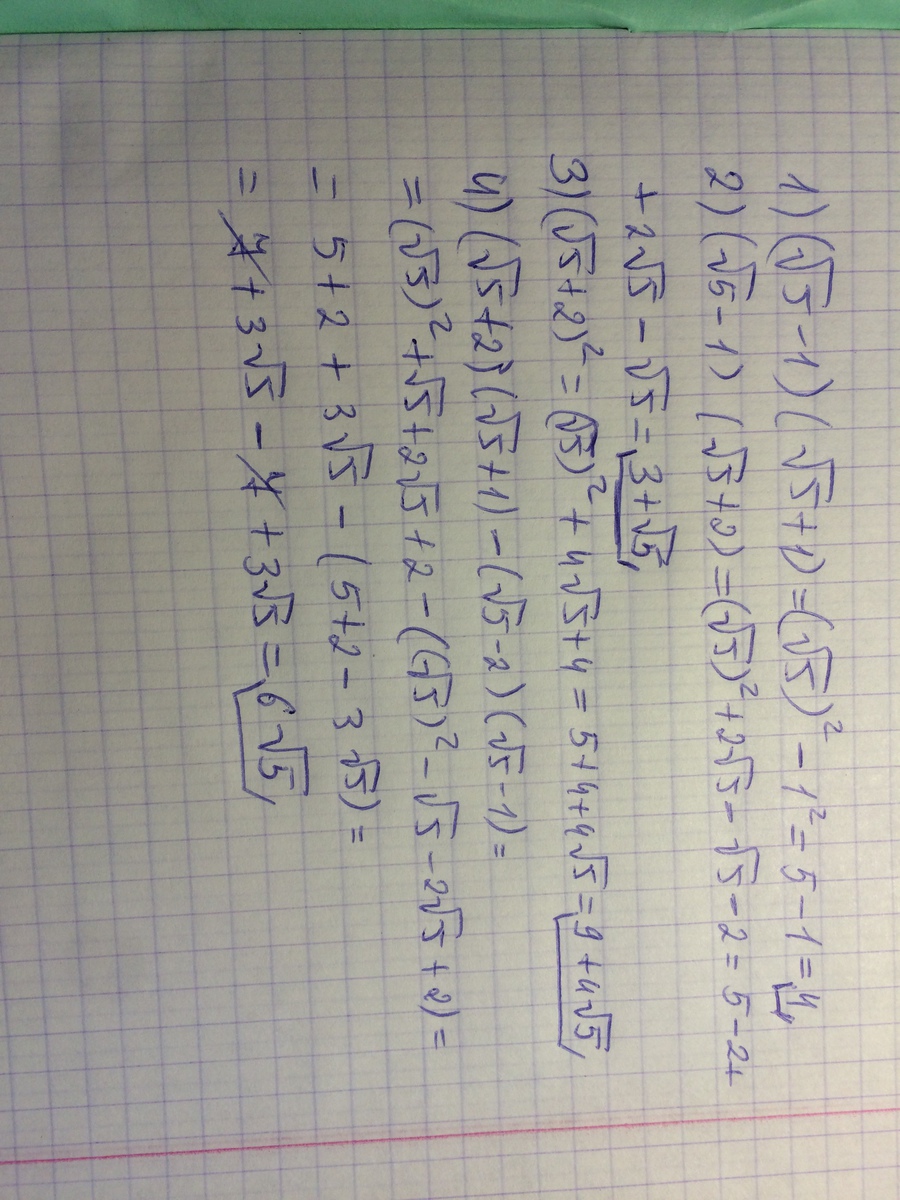 1) (√5 - 1) ( √5 + 1) = (√5)² - 1² = 5 - 1 = 4
2) (√5 - 1) (√5 + 2) = (√5)² + 2√5 - √5 - 2 = 5 - 2 +
+ 2√5 - √5 = 3 + √5
3) (√5 + 2)² = (√5)² + 4√5 + 4 = 5 + 4 + 4√5 = 9 + 4√5
4) (√5 + 2) (√5 + 1) - (√5 - 2) (√5 - 1) =
= (√5)² + √5 + 2√5 + 2 - ((√5)² - √5 - 2√5 + 2) =
= 5 + 2 + 3√5 - (5 + 2 - 3√5) =
= 7 + 3√5 - 7 + 3√5 = 6√5